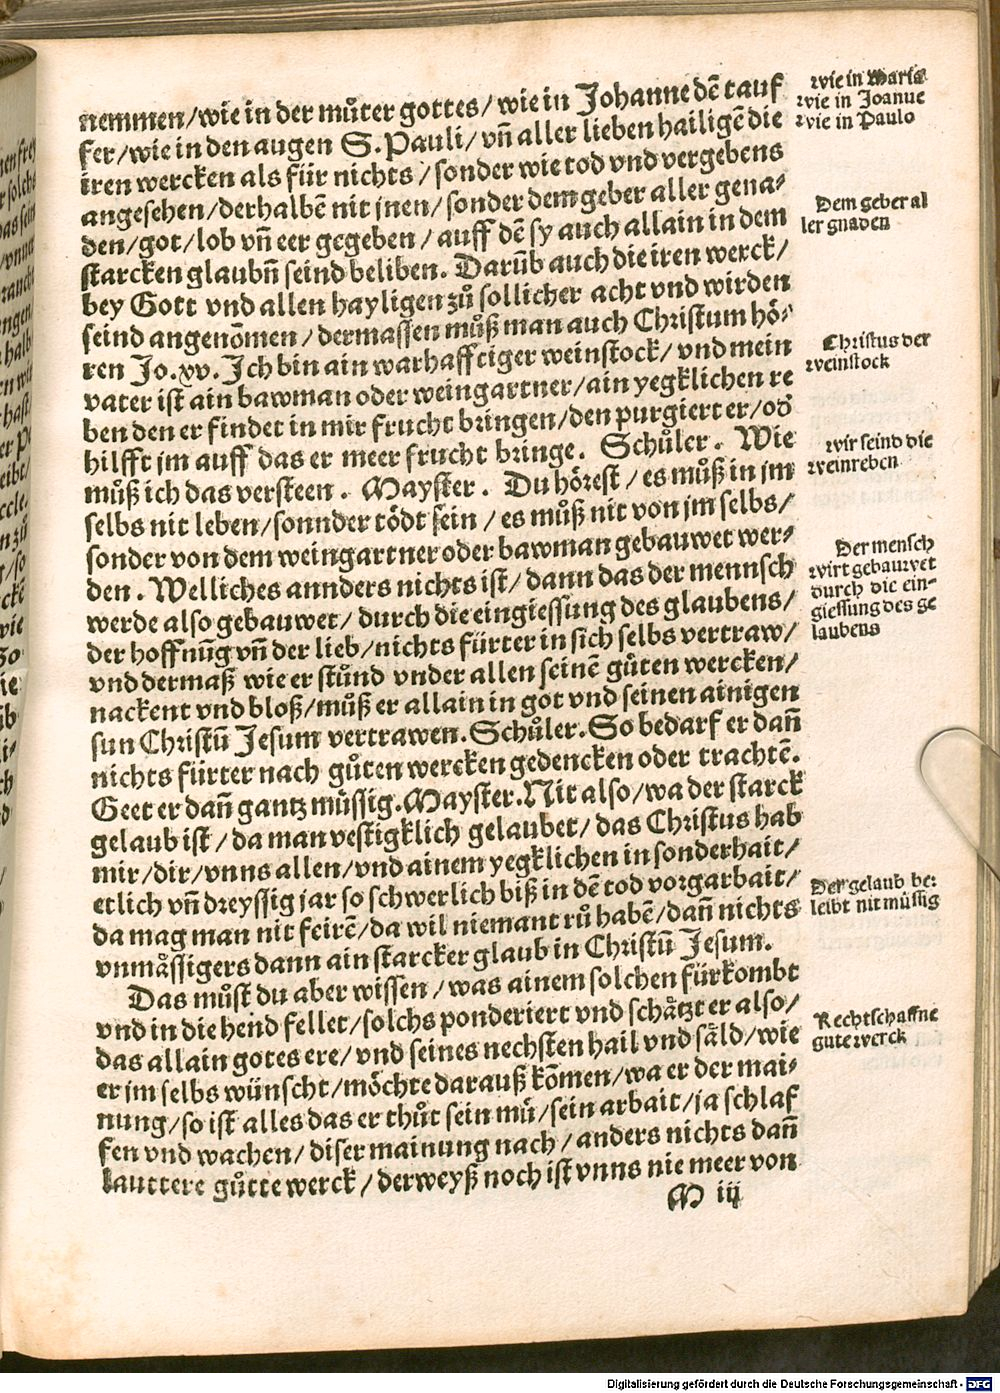 nemmen/wie in der můter gottes/wie in Johanne dē tauf
fer/wie in den augen S. Pauli/vñ aller lieben hailigē die
iren wercken als für nichts/sonder wie tod vnd vergebens
angesehen/derhalbē nit jnen/sonder dem geber aller gena-
den/got/lob vñ eer gegeben/auff dē sy auch allain in dem
starcken glaubñ seind beliben. Darūb auch die iren werck/
bey Gott vnd allen hayligen zů sollicher acht vnd wirden
seind angenōmen/dermassen můß man auch Christum hö-
ren Jo. xv. Ich bin ain warhafftiger weinstock/vnd mein
vater ist ain bawman oder weingartner/ain yegklichen re
ben den er findet in mir frucht bringen/den purgiert er/oď
hilfft jm auff das er meer frucht bringe. Schůler. Wie
můß ich das versteen. Mayster. Du hörest/es můß in jm
selbs nit leben/sonnder tödt sein/es můß nit von jm selbs/
sonder von dem weingartner oder bawman gebauwet wer-
den. Welliches annders nichts ist/dann das der mennsch
werde also gebauwet/durch die eingiessung des glaubens/
der hoffnūg vñ der lieb/nichts fürter in sich selbs vertraw/
vnd dermaß wie er stůnd vnder allen seinē gůten wercken/
nackent vnd bloß/můß er allain in got vnd seinen ainigen
sun Christū Jesum vertrawen. Schůler. So bedarf er dañ
nichts fürter nach gůten wercken gedencken oder trachtē.
Geet er dañ gantz müssig. Mayster. Nit also/wa der starck
gelaub ist/da man vestigklich gelaubet/das Christus hab
mir/dir/vnns allen/vnd ainem yegklichen in sonderhait/
etlich vñ dreyssig jar so schwerlich biß in dē tod vorgarbait/
da mag man nit feirē/da wil niemant rů habē/dañ nichts
vnmässigers dann ain starcker glaub in Christū Jesum.
Das můst du aber wissen/was ainem solchen fürkombt
vnd in die hend fellet/solchs ponderiert vnd schätzt er also/
das allain gotes ere/vnd seines nechsten hail vnd säld/wie
er jm selbs wünscht/möchte darauß kōmen/wa er der mai-
nung/so ist alles das er thůt sein mů/sein arbait/ja schlaf
fen vnd wachen/diser mainung nach/anders nichts dañ
lauttere gůtte werck/derweyß noch ist vnns nie meer von
M iij
wie in Maria
wie in Joanne
wie in Paulo
Dem geber al
ler gnaden
Christus der
weinstock
wir seind die
weinreben
Der mensch
wirt gebauwet
durch die ein-
giessung des ge
laubens
Der gelaub be-
leibt nit müssig
Rechtschaffne
gute werck
Digitalisierung gefördert durch die Deutsche Forschungsgemeinschaft - DFG